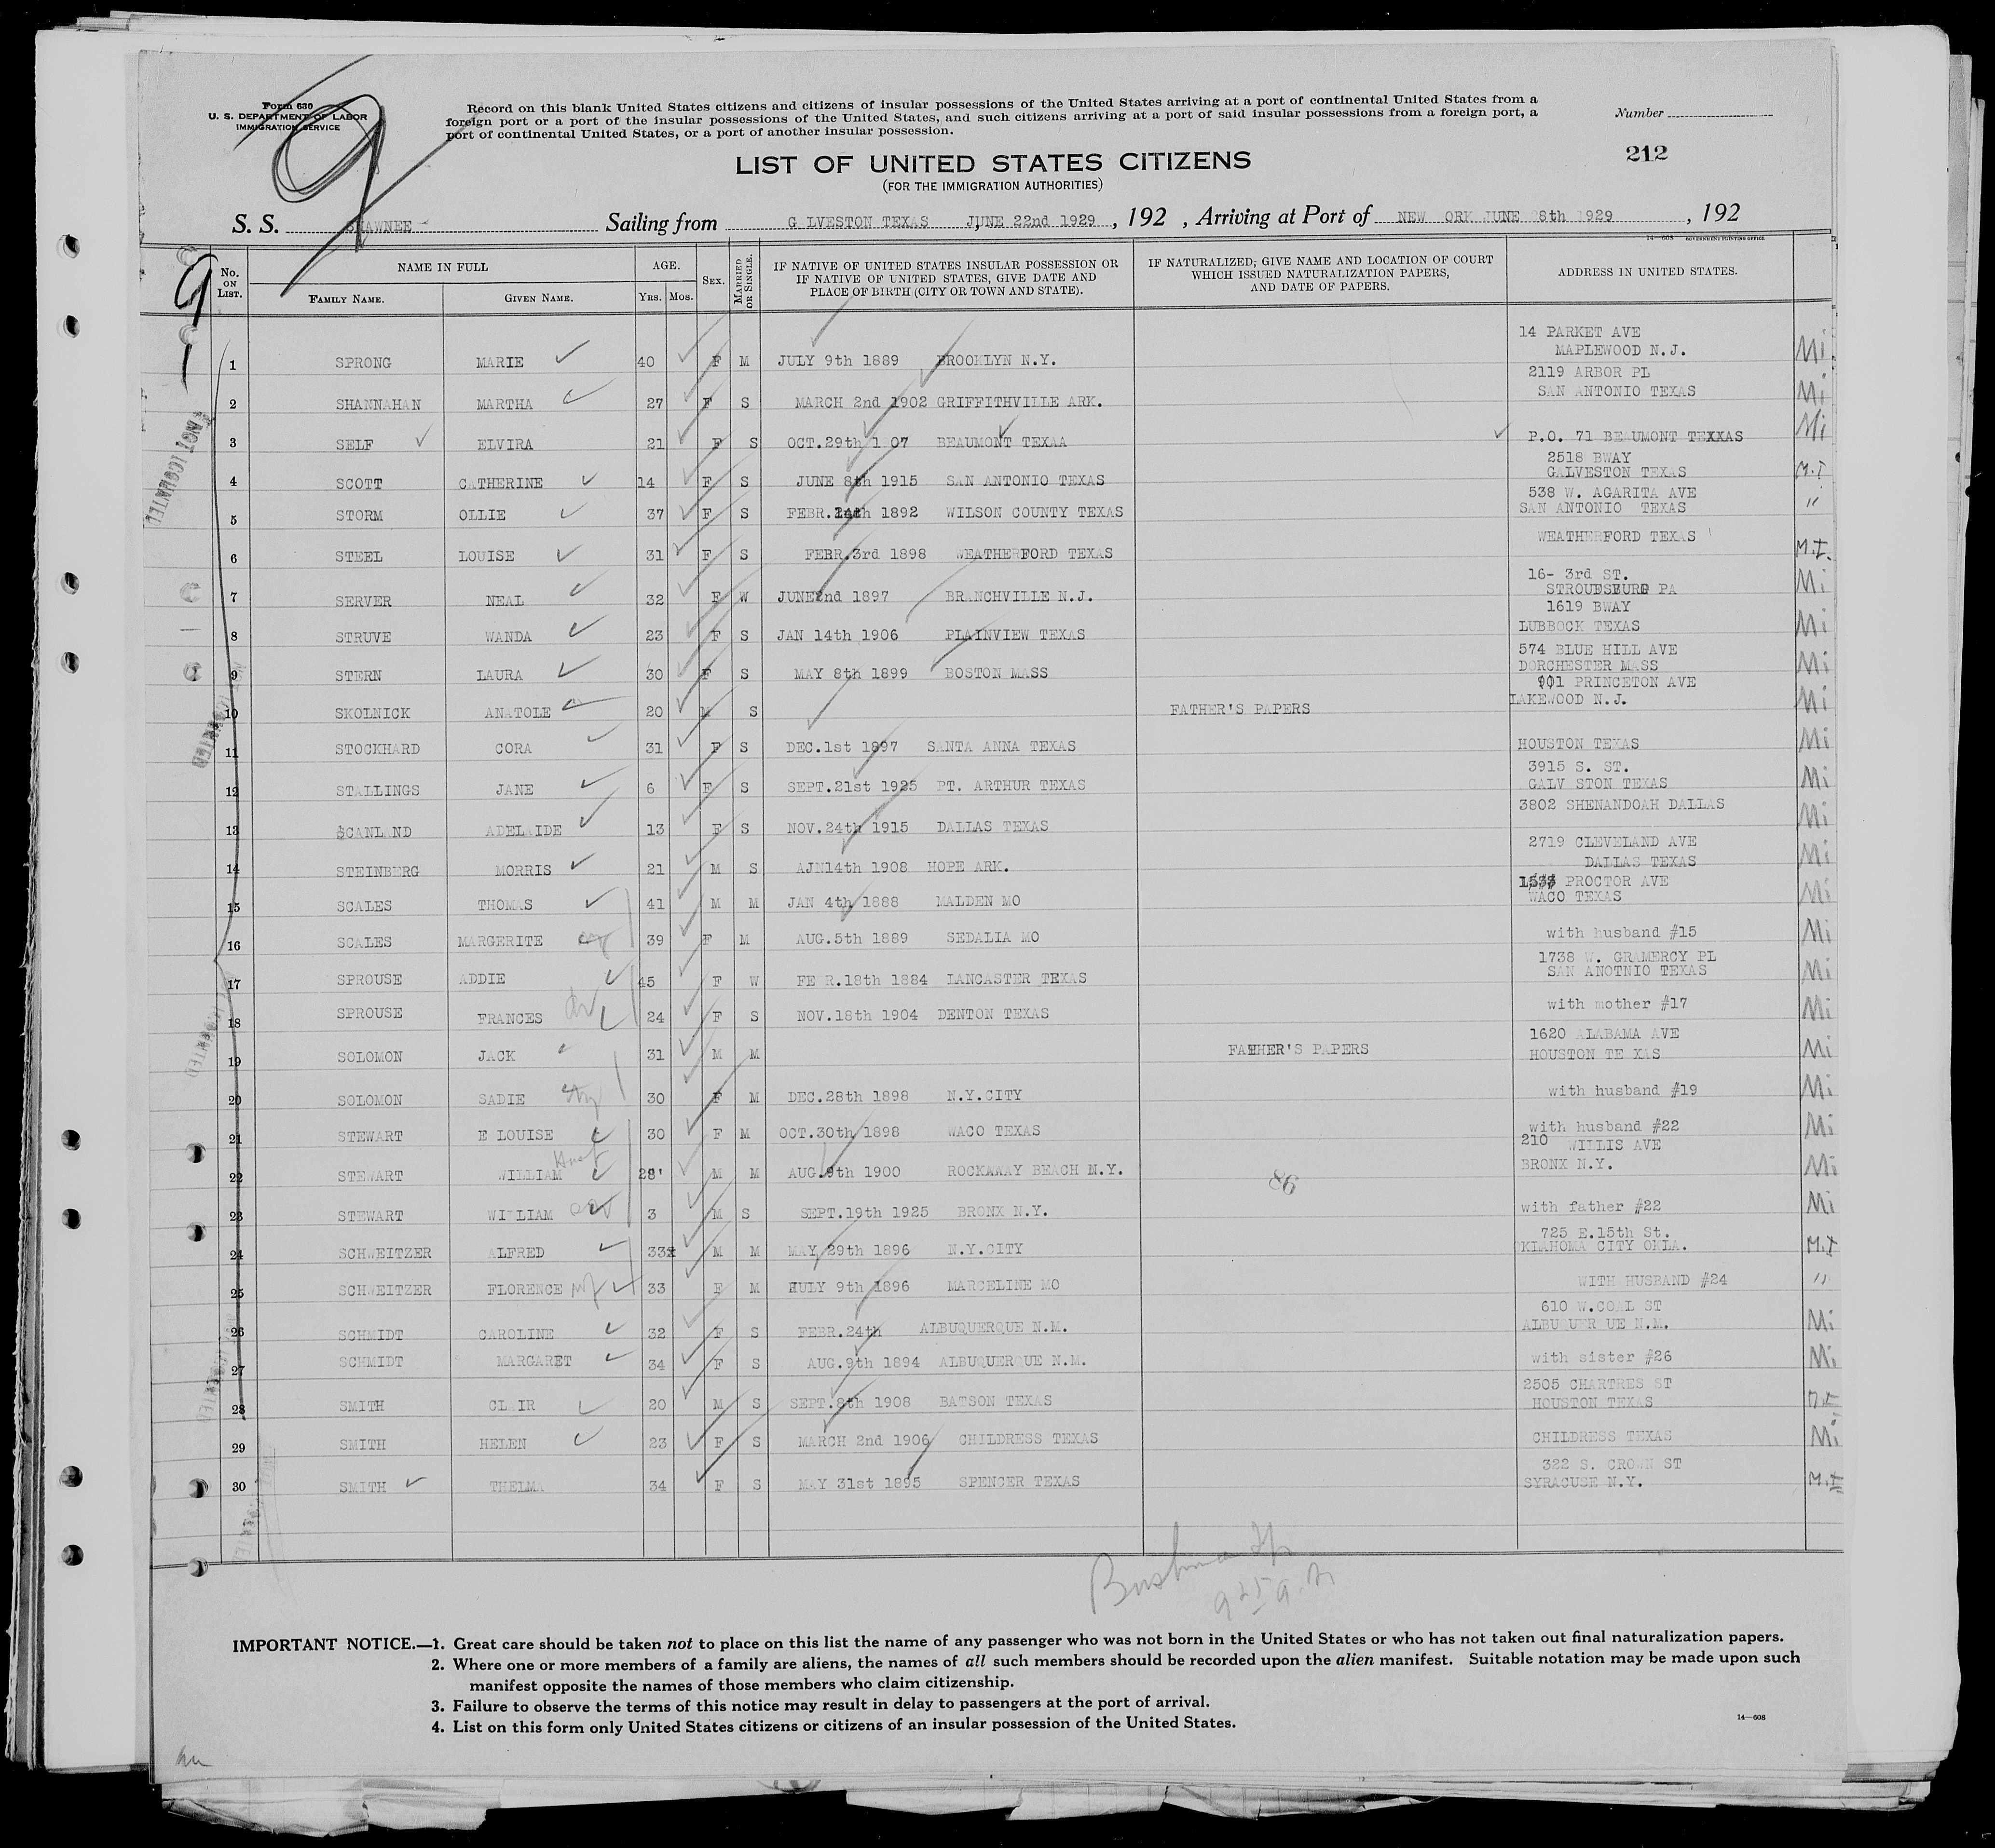 Form 630
U. S. DEPARTMENT OF LABOR
IMMIGRATION SERVICE
Record on this blank United States citizens and citizens of insular possessions of the United States arriving at a port of continental United States from a
foreign port or a port of the insular possessions of the United States, and such citizens arriving at a port of said insular possessions from a foreign port, a
port of continental United States, or a port of another insular possession.
Number
212
LIST OF UNITED STATES CITIZENS
(FOR THE IMMIGRATION AUTHORITIES)
S. S. SHAWNEE Sailing from G LVESTON TEXAS JUNE 22nd 1929, 192 , Arriving at Port of NEW ORK JUNE 8th 1929, 192
14—608 GOVERNMENT PRINTING OFFICE
No. ON LIST. NAME IN FULL FAMILY NAME. GIVEN NAME. AGE. YRS. MOS. SEX. MARRIED OR SINGLE. IF NATIVE OF UNITED STATES INSULAR POSSESSION OR IF NATIVE OF UNITED STATES, GIVE DATE AND PLACE OF BIRTH (CITY OR TOWN AND STATE). IF NATURALIZED, GIVE NAME AND LOCATION OF COURT WHICH ISSUED NATURALIZATION PAPERS, AND DATE OF PAPERS. ADDRESS IN UNITED STATES.
1 SPRONG MARIE 40 F M JULY 9th 1889 BROOKLYN N.Y. 14 PARKET AVE MAPLEWOOD N.J. Mi
2 SHANNAHAN MARTHA 27 F S MARCH 2nd 1902 GRIFFITHVILLE ARK. 2119 ARBOR PL SAN ANTONIO TEXAS Mi
3 SELF ELVIRA 21 F S OCT.29th 1907 BEAUMONT TEXAA P.O. 71 BEAUMONT TEXXAS Mi
4 SCOTT CATHERINE 14 F S JUNE 8th 1915 SAN ANTONIO TEXAS 2518 BWAY GALVESTON TEXAS M.I
5 STORM OLLIE 37 F S FEBR.14th 1892 WILSON COUNTY TEXAS 538 W. AGARITA AVE SAN ANTONIO TEXAS "
6 STEEL LOUISE 31 F S FEBR.3rd 1898 WEATHERFORD TEXAS WEATHERFORD TEXAS M.I.
7 SERVER NEAL 32 F W JUNE2nd 1897 BRANCHVILLE N.J. 16- 3rd ST. STROUDSBURG PA Mi
8 STRUVE WANDA 23 F S JAN 14th 1906 PLAINVIEW TEXAS 1619 BWAY LUBBOCK TEXAS Mi
9 STERN LAURA 30 F S MAY 8th 1899 BOSTON MASS 574 BLUE HILL AVE DORCHESTER MASS Mi
10 SKOLNICK ANATOLE 20 M S FATHER'S PAPERS 901 PRINCETON AVE LAKEWOOD N.J. Mi
11 STOCKHARD CORA 31 F S DEC.1st 1897 SANTA ANNA TEXAS HOUSTON TEXAS Mi
12 STALLINGS JANE 6 F S SEPT.21st 1925 PT. ARTHUR TEXAS 3915 S. ST. GALV STON TEXAS Mi
13 SCANLAND ADELAIDE 13 F S NOV.24th 1915 DALLAS TEXAS 3802 SHENANDOAH DALLAS Mi
14 STEINBERG MORRIS 21 M S AJN14th 1908 HOPE ARK. 2719 CLEVELAND AVE DALLAS TEXAS Mi
15 SCALES THOMAS 41 M M JAN 4th 1888 MALDEN MO PROCTOR AVE WACO TEXAS Mi
16 SCALES MARGERITE 39 F M AUG.5th 1889 SEDALIA MO with husband #15 Mi
17 SPROUSE ADDIE 45 F W FE R.18th 1884 LANCASTER TEXAS 1738 W. GRAMERCY PL SAN ANOTNIO TEXAS Mi
18 SPROUSE FRANCES 24 F S NOV.18th 1904 DENTON TEXAS with mother #17 Mi
19 SOLOMON JACK 31 M M FATHER'S PAPERS 1620 ALABAMA AVE HOUSTON TE XAS Mi
20 SOLOMON SADIE 30 F M DEC.28th 1898 N.Y.CITY with husband #19 Mi
21 STEWART E LOUISE 30 F M OCT.30th 1898 WACO TEXAS with husband #22 Mi
22 STEWART WILLIAM 28 M M AUG.9th 1900 ROCKAWAY BEACH N.Y. 86 210 WILLIS AVE BRONX N.Y. Mi
23 STEWART WILLIAM 3 M S SEPT.19th 1925 BRONX N.Y. with father #22 Mi
24 SCHWEITZER ALFRED 33 M M MAY 29th 1896 N.Y.CITY 725 E.15th St. OKLAHOMA CITY OKLA. M.I
25 SCHWEITZER FLORENCE 33 F M HULY 9th 1896 MARCELINE MO WITH HUSBAND #24 "
26 SCHMIDT CAROLINE 32 F S FEBR.24th ALBUQUERQUE N.M. 610 W.COAL ST ALBU UER UE N.M. Mi
27 SCHMIDT MARGARET 34 F S AUG.9th 1894 ALBUQUERQUE N.M. with sister #26 Mi
28 SMITH CLAIR 20 M S SEPT.8th 1908 BATSON TEXAS 2505 CHARTRES ST HOUSTON TEXAS M.I
29 SMITH HELEN 23 F S MARCH 2nd 1906 CHILDRESS TEXAS CHILDRESS TEXAS Mi
30 SMITH THELMA 34 F S MAY 31st 1895 SPENCER TEXAS 322 S. CROWN ST SYRACUSE N.Y. M.I
IMPORTANT NOTICE.—1. Great care should be taken not to place on this list the name of any passenger who was not born in the United States or who has not taken out final naturalization papers.
2. Where one or more members of a family are aliens, the names of all such members should be recorded upon the alien manifest. Suitable notation may be made upon such
manifest opposite the names of those members who claim citizenship.
3. Failure to observe the terms of this notice may result in delay to passengers at the port of arrival.
4. List on this form only United States citizens or citizens of an insular possession of the United States.
14—608